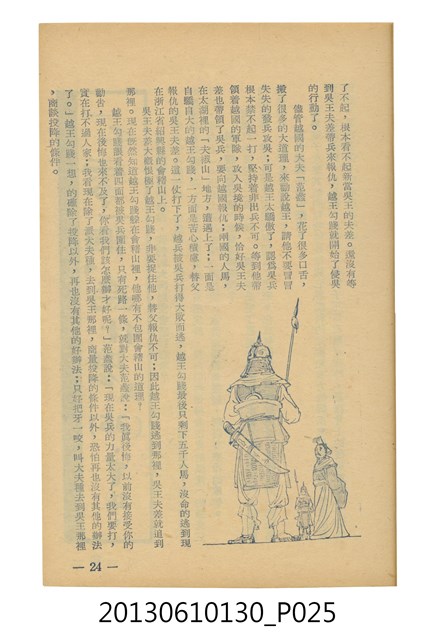 了不起，根本看不起新當吳王的夫差。還沒有等
到吳王夫差帶兵來報仇，越王勾踐就開始了侵吳
的行動了。
儘管越國的大夫「范蠡」，花了很多口舌，
搬了很多的大道理，來勸說越王，請他不要冒冒
失失的發兵攻吳；可是越王太驕傲了，認爲吳兵
根本禁不起一打，堅持着非出兵不可。等到他帶
領着越國的軍隊，攻入吳境的時候，恰好吳王夫
差也帶領了吳兵，要向越國報仇；兩國的人馬，
在太湖裡的「夫湫山」地方，遭遇上了：一面是
自驕自大的越王勾踐，一方面是苦心積慮，替父
報仇的吳王夫差。這一仗打下了，越兵被吳兵打得大敗而逃，越王勾踐最後只剩下五千人馬，沒命的逃到現
在浙江省紹興縣的會稽山上。
吳王夫差大概恨極了越王勾踐，非要捉住他，替父報仇不可；因此越王勾踐逃到那裡，吳王夫差就追到
那裡。現在既然知道越王勾踐躱在會稽山裡，他哪有不包圍會稽山的道理？
越王勾踐眼看着四面都被吳兵圍住，只有死路一條，就對大夫范蠡說：「我眞後悔，以前沒有接受你的
勸告，現在後悔也來不及了，你看我們該怎麼辦才好呢？」范蠡說：「現在吳兵的力量太大了，我們要打，
實在打不過人家；我看現在除了派大夫種，去到吳王那裡，商量投降的條件以外，恐怕再也沒有其他的辦法
了。」越王勾踐一想，的確除了投降以外，再也沒有其他的好辦法；只好把牙一咬，叫大夫種去到吳王那裡
，商談投降的條件。
— 24 —
20130610130_P025